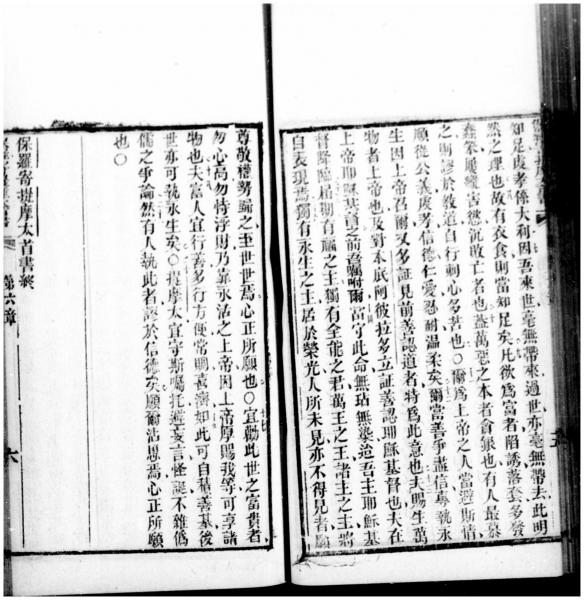 知足虔孝係大利因吾來世毫無帶來過世亦毫無帶去此明
然之理也故有衣食則當知足矣凡欲爲富者陷誘落套多發
蠢呆屢縱古慾沉敗亡者也蓋萬惡之本者貪銀也有人最慕
之則謬於教道自行刺心多苦也○爾爲上帝之人當避斯情
順從公義虔孝信德仁愛忍耐溫柔矣爾當善爭護信專執永
生因上帝召爾又多証見前善認道者特爲此意也夫賜生萬
物者上帝也及對本底阿彼拉多立証善認耶穌基督也夫在
上帝耶穌基督之前吾囑咐爾當守此命無玷無染迨吾主耶穌基
督降臨屆期有福之主獨有全能之君萬王之王諸主之主將
自表現焉獨有永生之主居於榮光人所未見亦不得見者願
尊敬權勢歸之至世世焉心正所願也○宜勸此世之富貴者
勿心高勿恃浮財乃靠永活之上帝因上帝厚賜我等可享諸
物也夫富人宜行善多行方便常賙善濟如此可自積善基後
世亦可執永生矣○提摩太宜守斯囑托避妄言怪誕不雜偽
儒之爭論然有人執此者謬於信德矣願爾沾恩焉心正所願
也○
保羅寄提摩太首書終
第六章 六